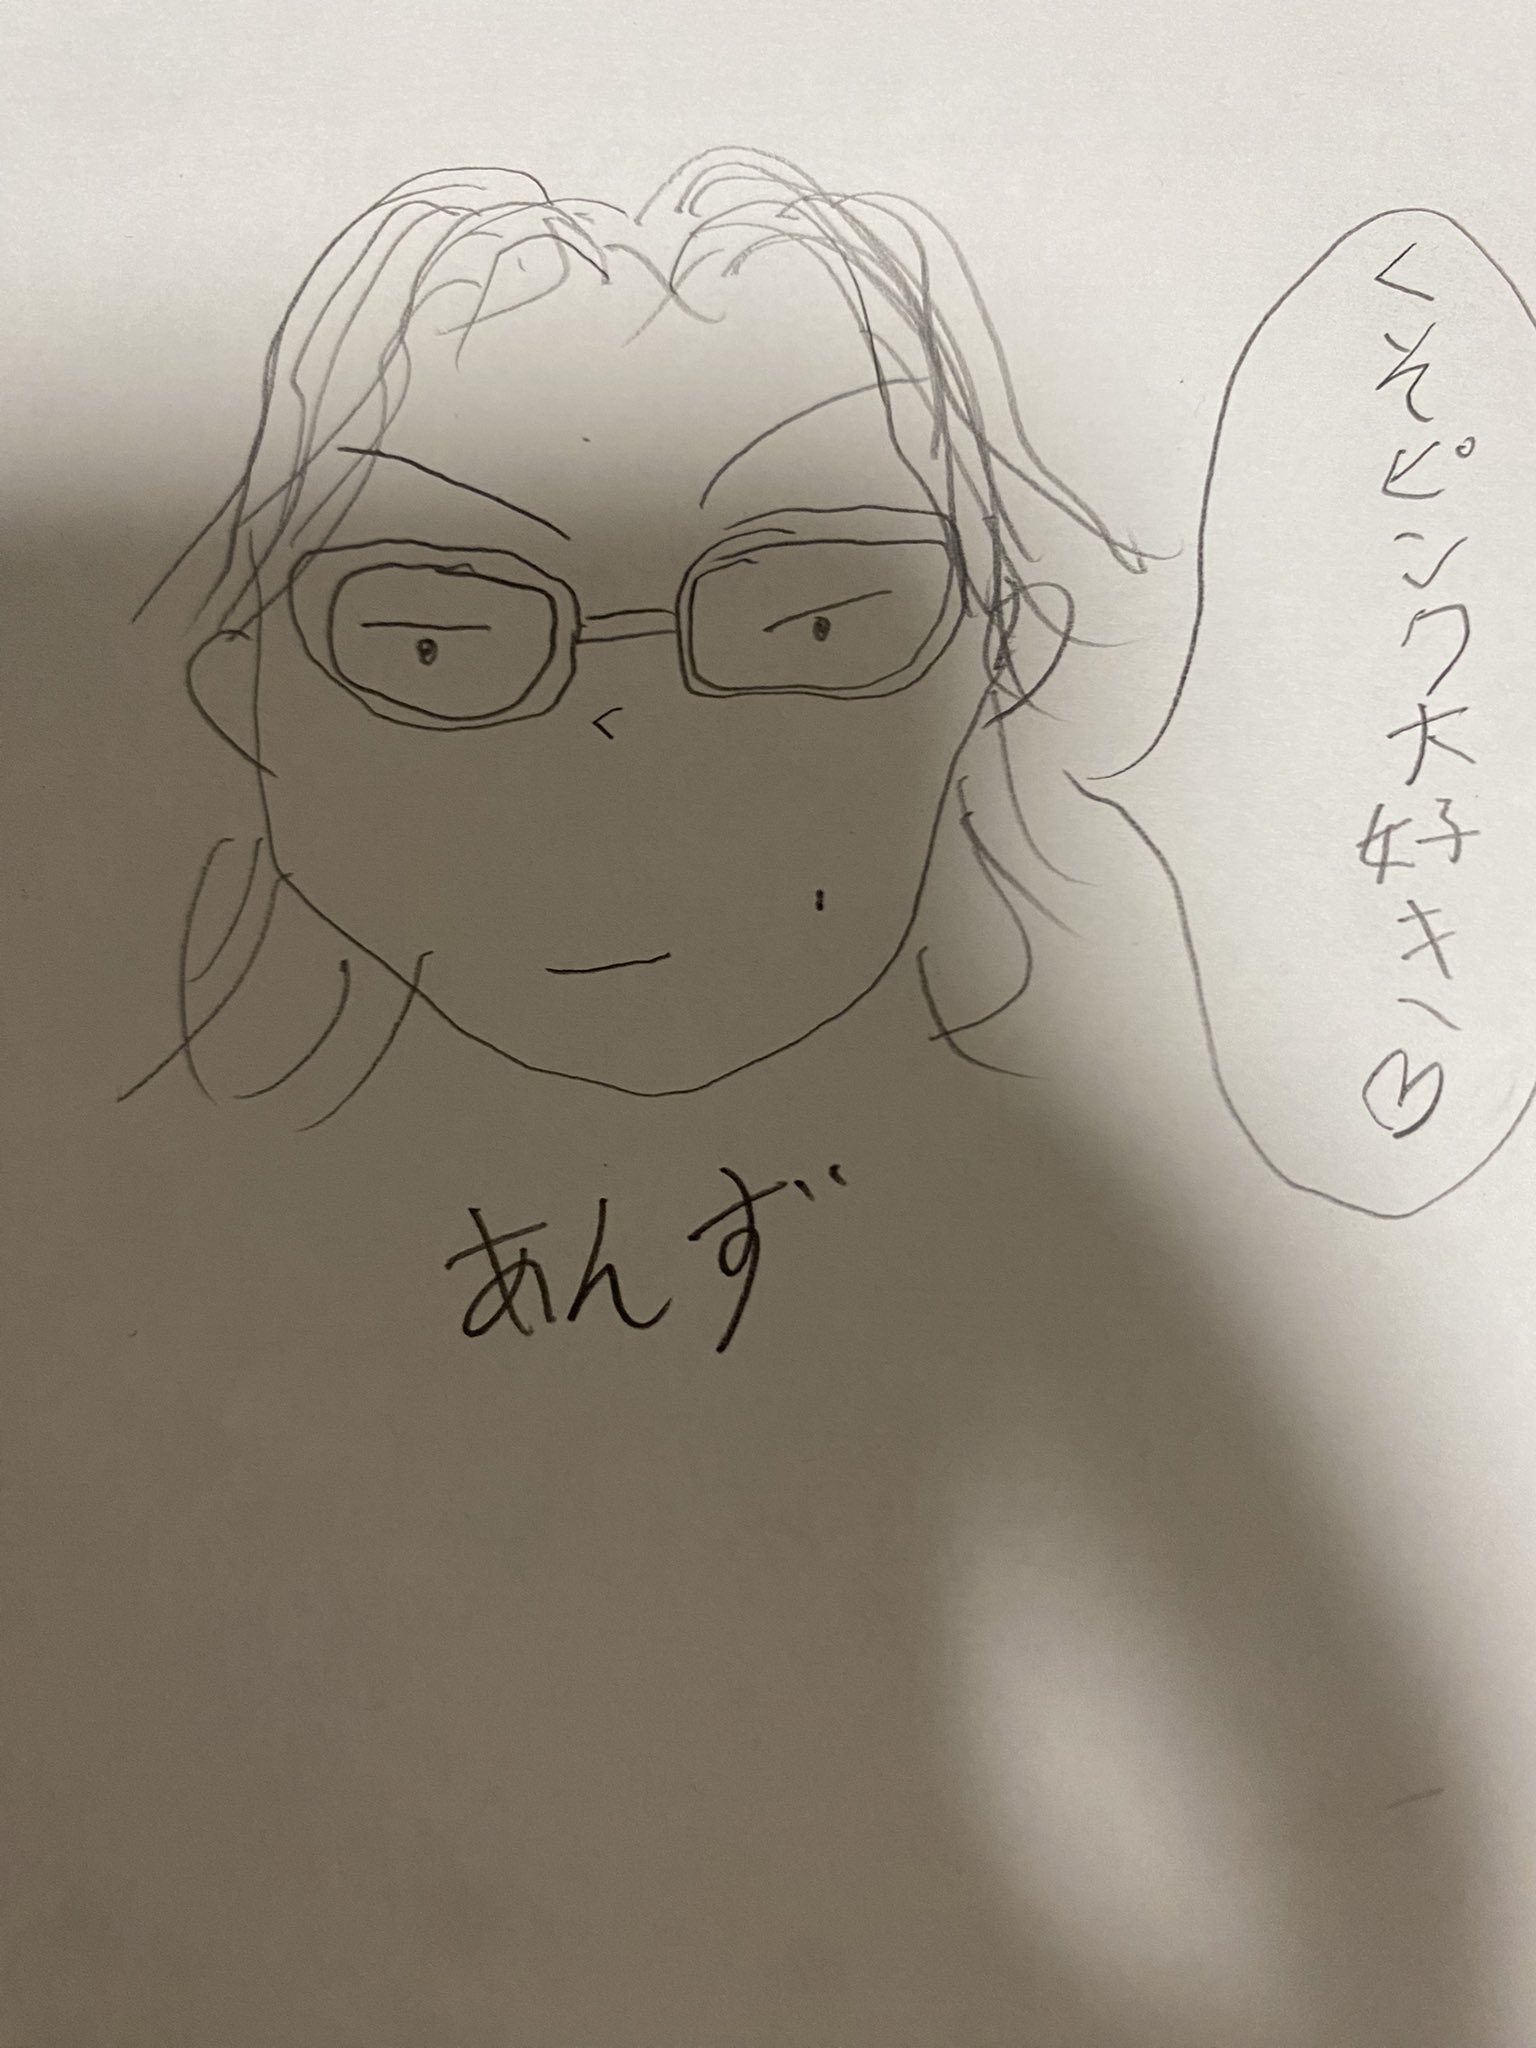 くそピンク大好きへ♡
あんず